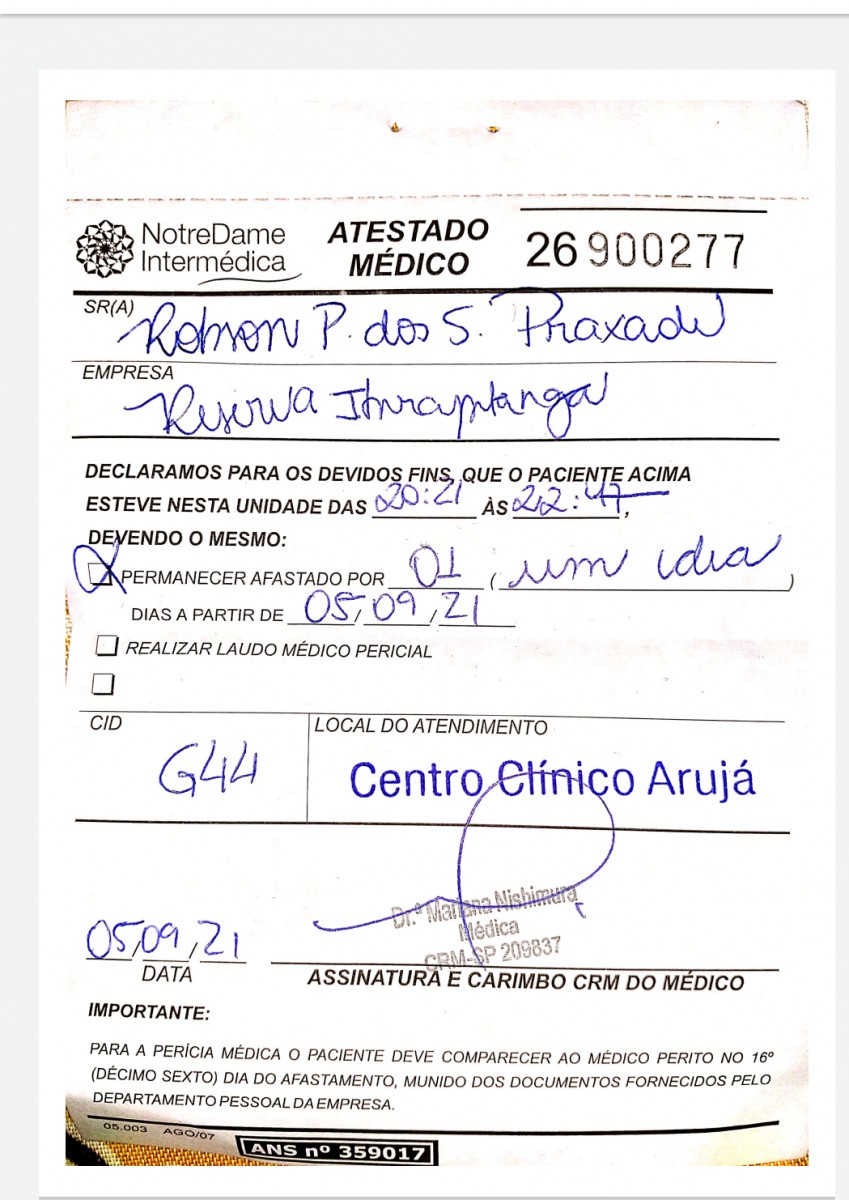 NotreDame
Intermédica
ATESTADO
MÉDICO
26 900277
SR(A)
Robson P. dos S. Praxade
EMPRESA
Reserva Ibirapitanga
DECLARAMOS PARA OS DEVIDOS FINS, QUE O PACIENTE ACIMA
ESTEVE NESTA UNIDADE DAS 20:21 ÀS 22:47,
DEVENDO O MESMO:
PERMANECER AFASTADO POR 01 ( um dia )
DIAS A PARTIR DE 05/09/21
REALIZAR LAUDO MÉDICO PERICIAL
CID
G44
LOCAL DO ATENDIMENTO
Centro Clínico Arujá
Dr.ª Mariana Nishimura
Médica
CRM-SP 209837
05/09/21
DATA
ASSINATURA E CARIMBO CRM DO MÉDICO
IMPORTANTE:
PARA A PERÍCIA MÉDICA O PACIENTE DEVE COMPARECER AO MÉDICO PERITO NO 16º
(DÉCIMO SEXTO) DIA DO AFASTAMENTO, MUNIDO DOS DOCUMENTOS FORNECIDOS PELO
DEPARTAMENTO PESSOAL DA EMPRESA.
05.003 AGO/07
ANS nº 359017